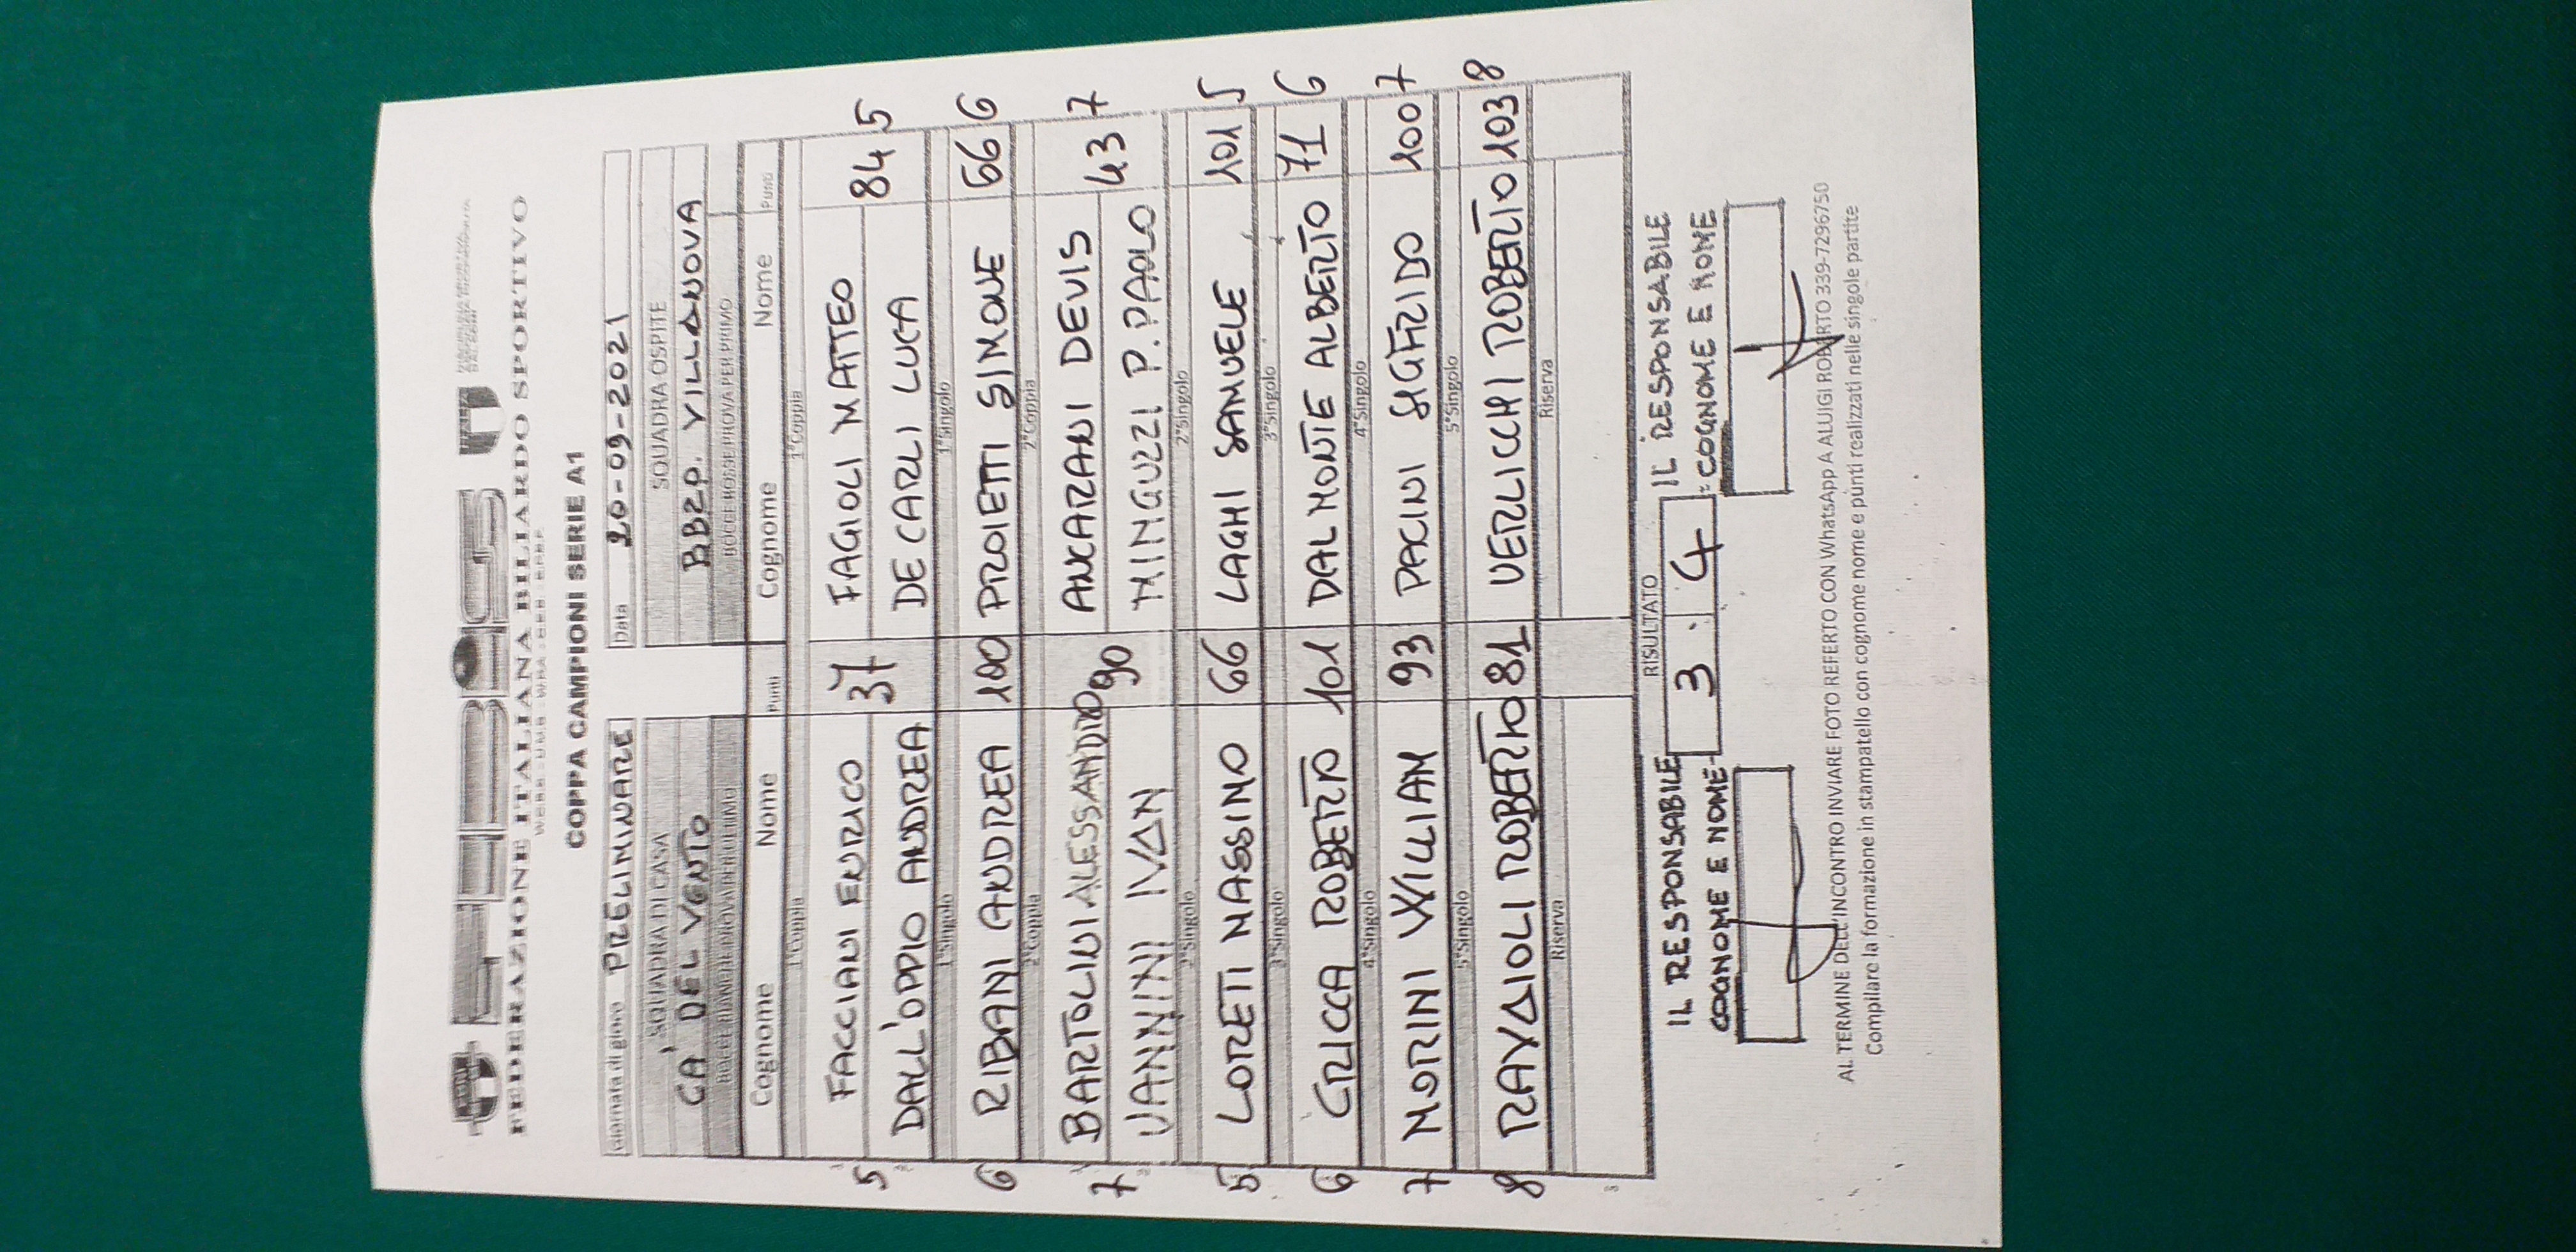 FEDERAZIONE ITALIANA BILIARDO SPORTIVO
COPPA CAMPIONI SERIE A1
Giornata di gioco PRELIMINARE Data 20-09-2021
SQUADRA DI CASA SQUADRA OSPITE
CA' DEL VENTO BBZP. VILLANOVA
BOCCE BIANCHE PROVA PER PRIMO BOCCE ROSSE PROVA PER PRIMO
Cognome Nome Punti Cognome Nome Punti
1°Coppia 1°Coppia
5 FACCIANI ENRICO 37 FAGIOLI MATTEO 84 5
DALL'OPPIO ANDREA DE CARLI LUCA
1°Singolo 1°Singolo
6 RIBANI ANDREA 100 PROIETTI SIMONE 66 6
2°Coppia 2°Coppia
7 BARTOLINI ALESSANDRO 90 ANCARANI DEVIS 43 7
VANNINI IVAN MINGUZZI P. PAOLO
2°Singolo 2°Singolo
5 LORETI MASSIMO 66 LAGHI SAMUELE 101 5
3°Singolo 3°Singolo
6 CRICCA ROBERTO 101 DAL MONTE ALBERTO 71 6
4°Singolo 4°Singolo
7 MORINI WILLIAM 93 PACINI SIGFRIDO 100 7
5°Singolo 5°Singolo
8 RAVAIOLI ROBERTO 81 VERLICCHI ROBERTO 103 8
Riserva Riserva
RISULTATO
IL RESPONSABILE 3 . 4 IL RESPONSABILE
COGNOME E NOME COGNOME E NOME
AL TERMINE DELL'INCONTRO INVIARE FOTO REFERTO CON WhatsApp A ALUIGI ROBERTO 339-7296750
Compilare la formazione in stampatello con cognome nome e punti realizzati nelle singole partite